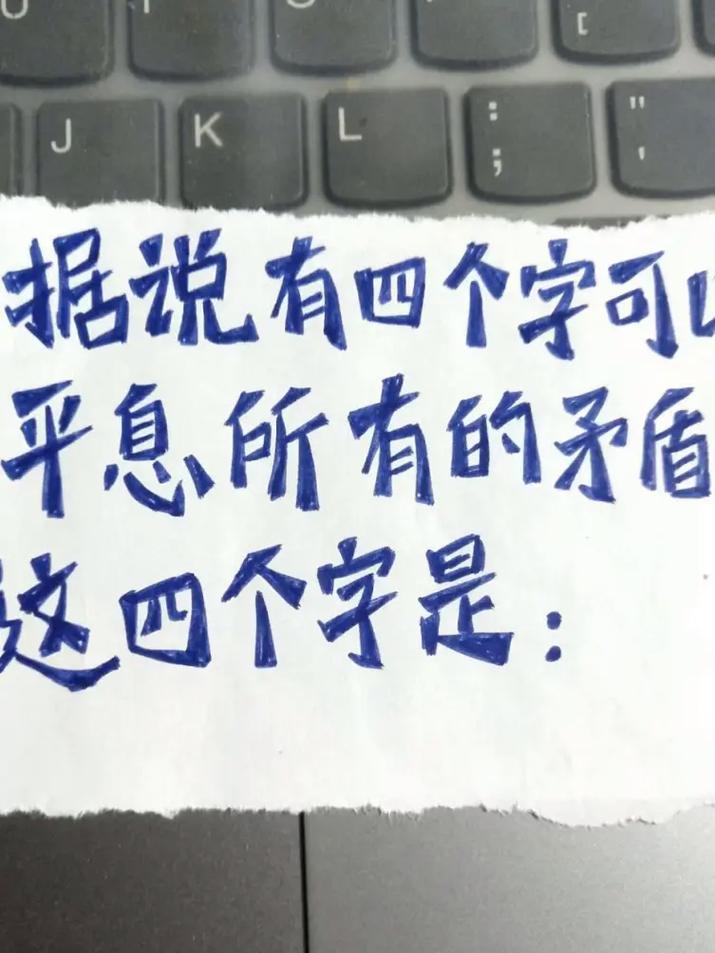 J K L : ; " '
据说有四个字可以
平息所有的矛盾
这四个字是：